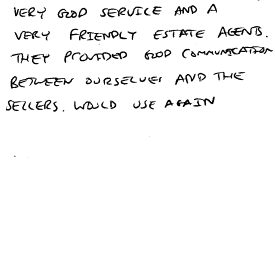 VERY GOOD SERVICE AND A
VERY FRIENDLY ESTATE AGENTS.
THEY PROVIDED GOOD COMMUNICATION
BETWEEN OURSELVES AND THE
SELLERS. WOULD USE AGAIN